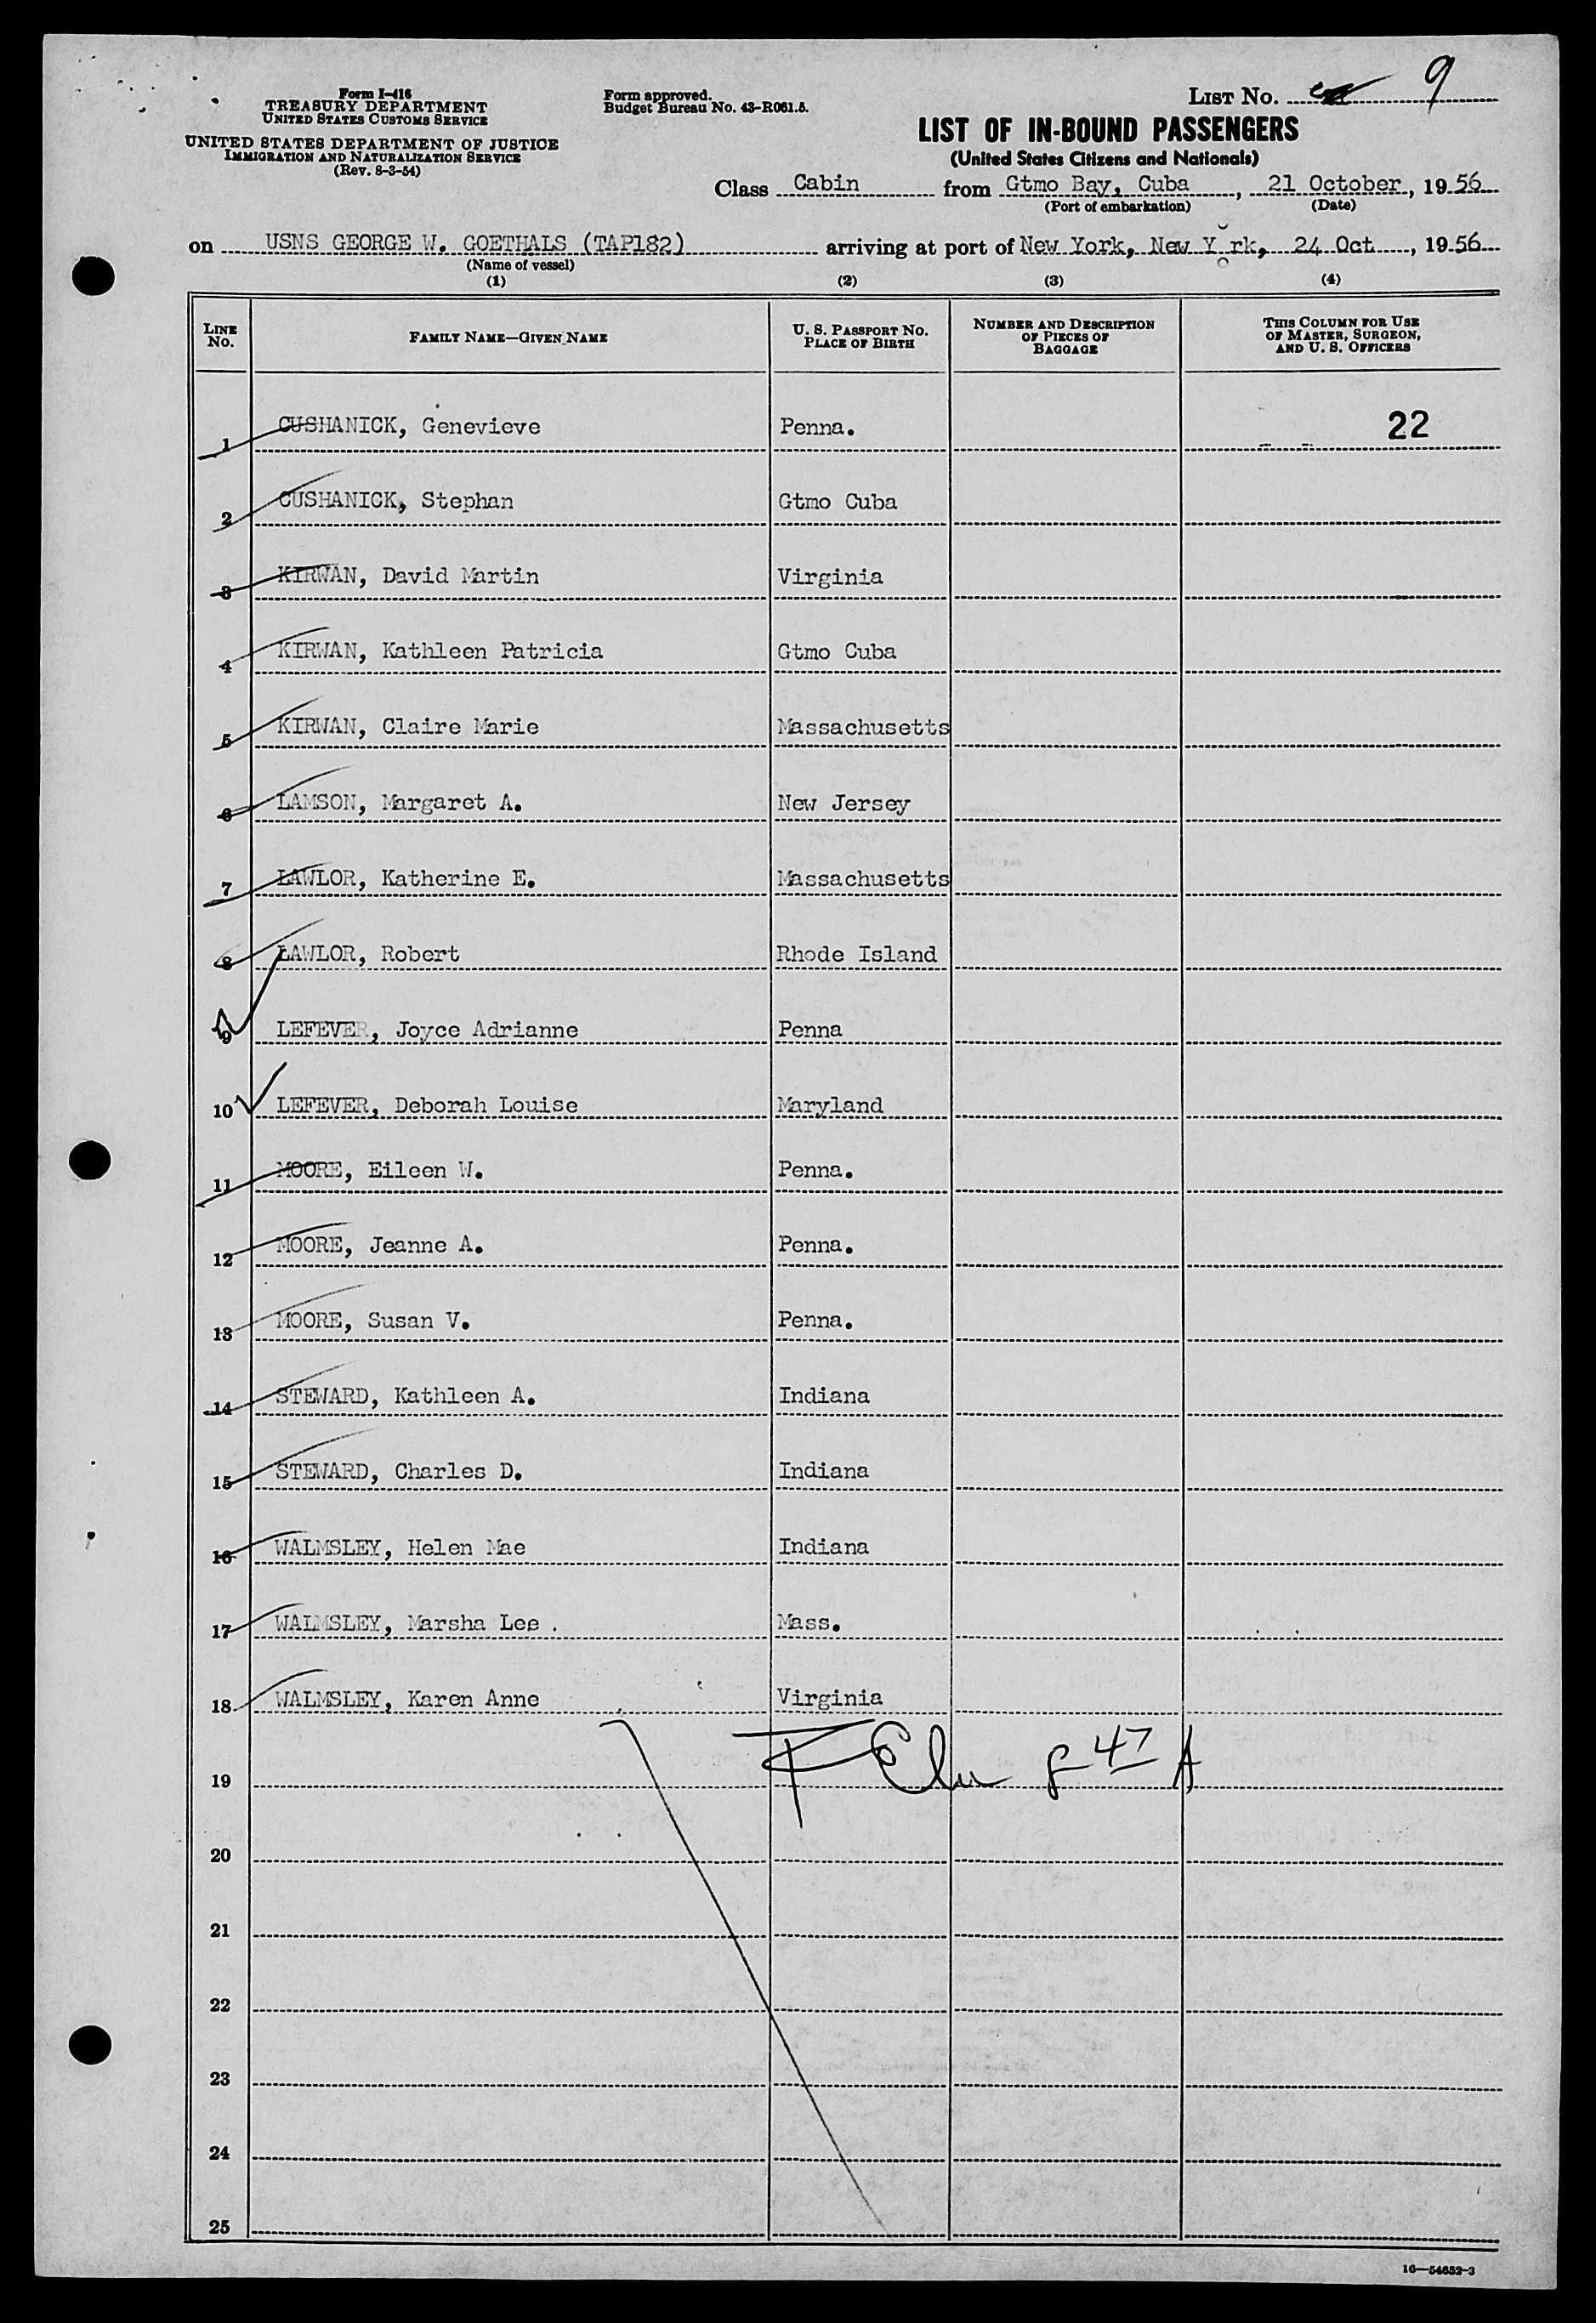 Form I-416
TREASURY DEPARTMENT
UNITED STATES CUSTOMS SERVICE
UNITED STATES DEPARTMENT OF JUSTICE
IMMIGRATION AND NATURALIZATION SERVICE
(Rev. 8-3-54)
Form approved.
Budget Bureau No. 43-R061.5.
LIST No. 9
LIST OF IN-BOUND PASSENGERS
(United States Citizens and Nationals)
Class Cabin from Gtmo Bay, Cuba, 21 October, 1956
(Port of embarkation) (Date)
on USNS GEORGE W. GOETHALS (TAP182) arriving at port of New York, New York, 24 Oct, 1956
(Name of vessel)
(1) (2) (3) (4)
LINE No. FAMILY NAME—GIVEN NAME U. S. PASSPORT No. PLACE OF BIRTH NUMBER AND DESCRIPTION OF PIECES OF BAGGAGE THIS COLUMN FOR USE OF MASTER, SURGEON, AND U. S. OFFICERS
1 CUSHANICK, Genevieve Penna. 22
2 CUSHANICK, Stephan Gtmo Cuba
3 KIRWAN, David Martin Virginia
4 KIRWAN, Kathleen Patricia Gtmo Cuba
5 KIRWAN, Claire Marie Massachusetts
6 LAMSON, Margaret A. New Jersey
7 LAWLOR, Katherine E. Massachusetts
8 LAWLOR, Robert Rhode Island
9 LEFEVER, Joyce Adrianne Penna
10 LEFEVER, Deborah Louise Maryland
11 MOORE, Eileen W. Penna.
12 MOORE, Jeanne A. Penna.
13 MOORE, Susan V. Penna.
14 STEWARD, Kathleen A. Indiana
15 STEWARD, Charles D. Indiana
16 WALMSLEY, Helen Mae Indiana
17 WALMSLEY, Marsha Lee . Mass.
18 WALMSLEY, Karen Anne Virginia
19
20
21
22
23
24
25
16—54652-3